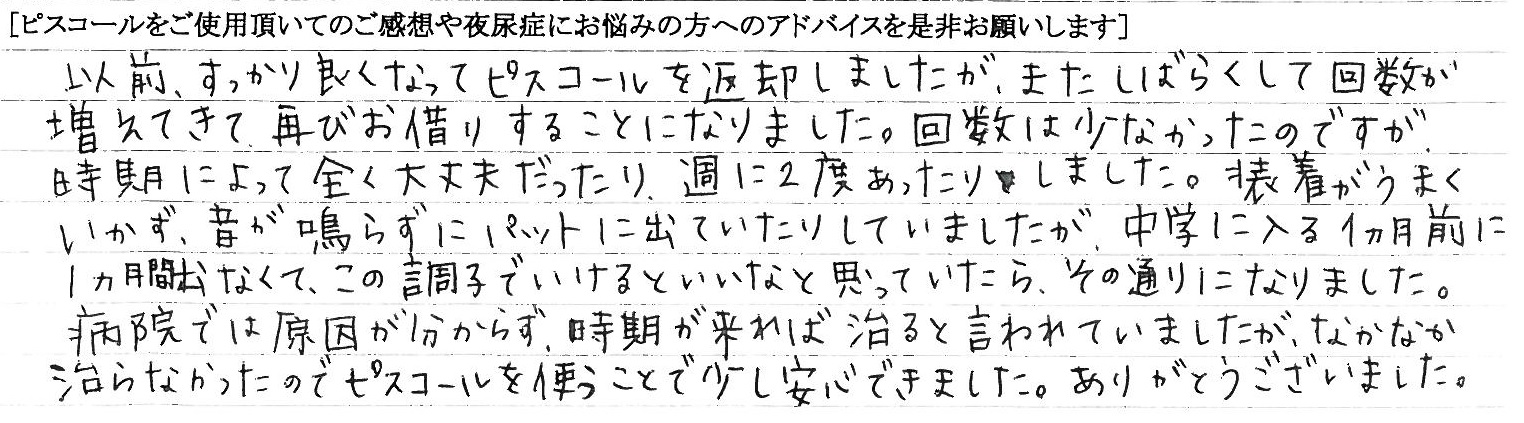 [ピスコールをご使用頂いてのご感想や夜尿症にお悩みの方へのアドバイスを是非お願いします]
以前、すっかり良くなってピスコールを返却しましたが、またしばらくして回数が
増えてきて、再びお借りすることになりました。回数は少なかったのですが、
時期によって全く大丈夫だったり、週に2度あったりしました。装着がうまく
いかず、音が鳴らずにパットに出ていたりしていましたが、中学に入る1ヵ月前に
1ヵ月間出なくて、この調子でいけるといいなと思っていたら、その通りになりました。
病院では原因が分からず、時期が来れば治ると言われていましたが、なかなか
治らなかったのでピスコールを使うことで少し安心できました。ありがとうございました。